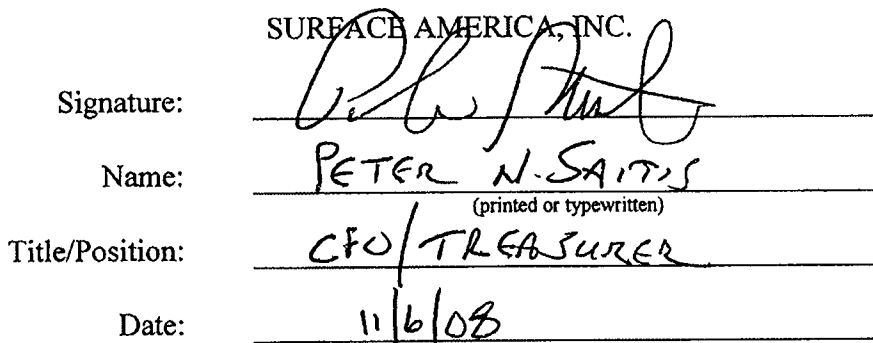 SURFACE AMERICA, INC.
Signature:
Name: PETER N. SAITIS
(printed or typewritten)
Title/Position: CFO/TREASURER
Date: 11/6/08